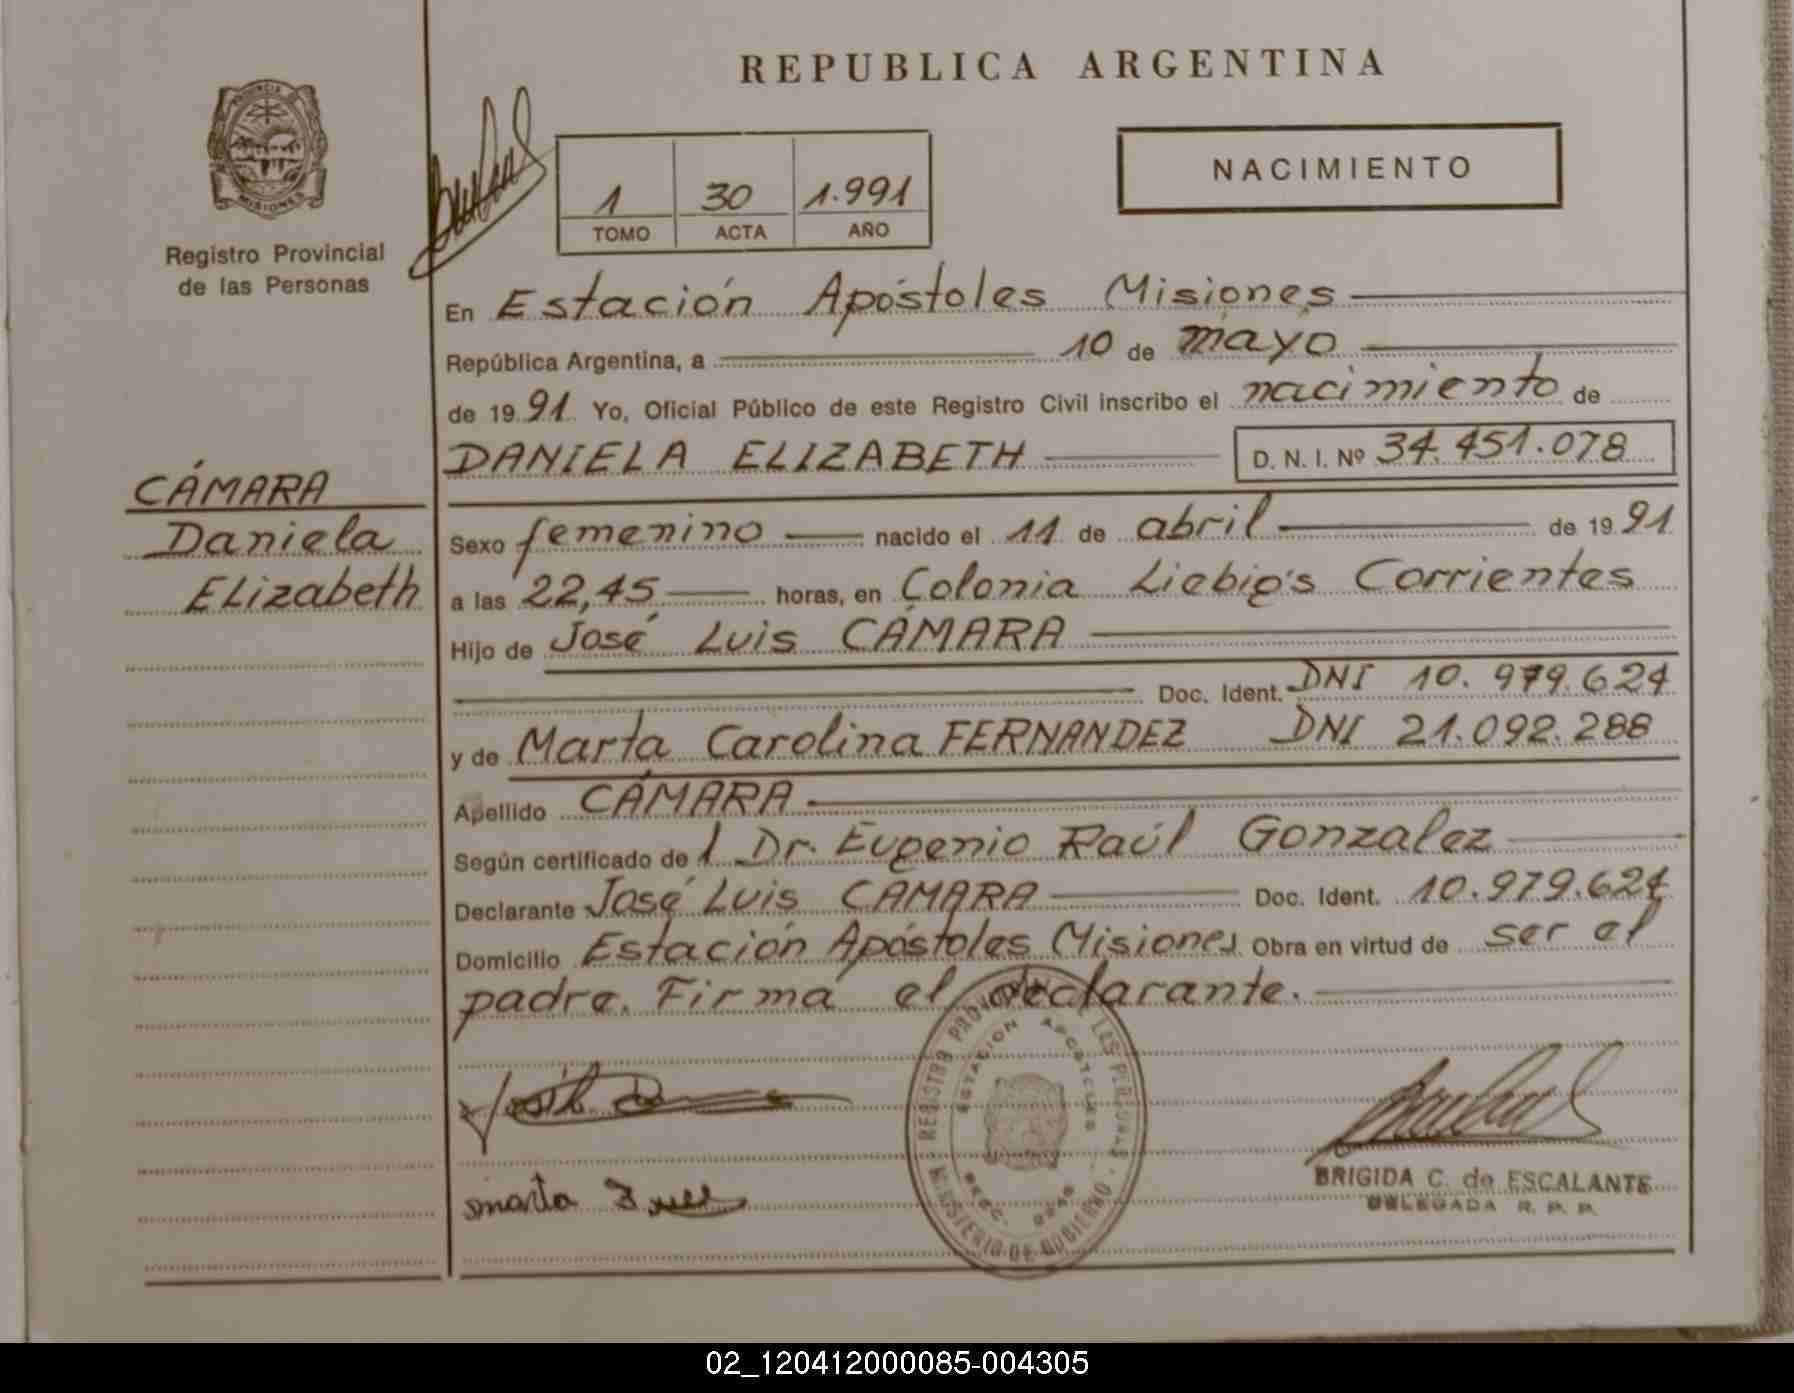 REPUBLICA ARGENTINA
PROVINCIA
MISIONES
Registro Provincial
de las Personas
1 30 1.991
TOMO ACTA AÑO
NACIMIENTO
En Estación Apóstoles Misiones
República Argentina, a 10 de mayo
de 19 91 Yo, Oficial Público de este Registro Civil inscribo el nacimiento de
DANIELA ELIZABETH D. N. I. Nº 34.451.078
CÁMARA
Daniela
Elizabeth
Sexo femenino nacido el 11 de abril de 19 91
a las 22,45 horas, en Colonia Liebig's Corrientes
Hijo de José Luis CÁMARA
Doc. Ident. DNI 10.979.624
y de Marta Carolina FERNANDEZ DNI 21.092.288
Apellido CÁMARA
Según certificado de l Dr. Eugenio Raúl Gonzalez
Declarante José Luis CAMARA Doc. Ident. 10.979.624
Domicilio Estación Apóstoles Misiones Obra en virtud de ser el
padre. Firma el declarante.
REGISTRO PROVINCIAL DE LAS PERSONAS
ESTACION APOSTOLES
MINISTERIO DE GOBIERNO
marta
BRIGIDA C. de ESCALANTE
DELEGADA R. P. P.
02_120412000085-004305